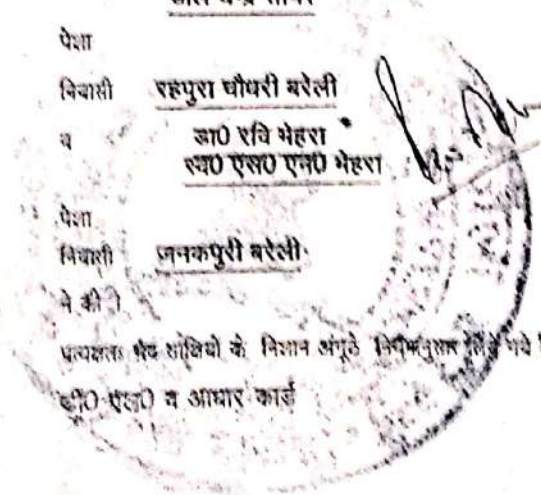 पेशा
निवासी रहपुरा चौधरी बरेली
व डा0 रवि मेहरा
स्व0 एस0 एन0 मेहरा
पेशा
निवासी जनकपुरी बरेली
ने की ।
प्रत्यक्षतः भद्र साक्षियों के निशान अंगूठे नियमानुसार लिये गये
डी0 एल0 व आधार कार्ड